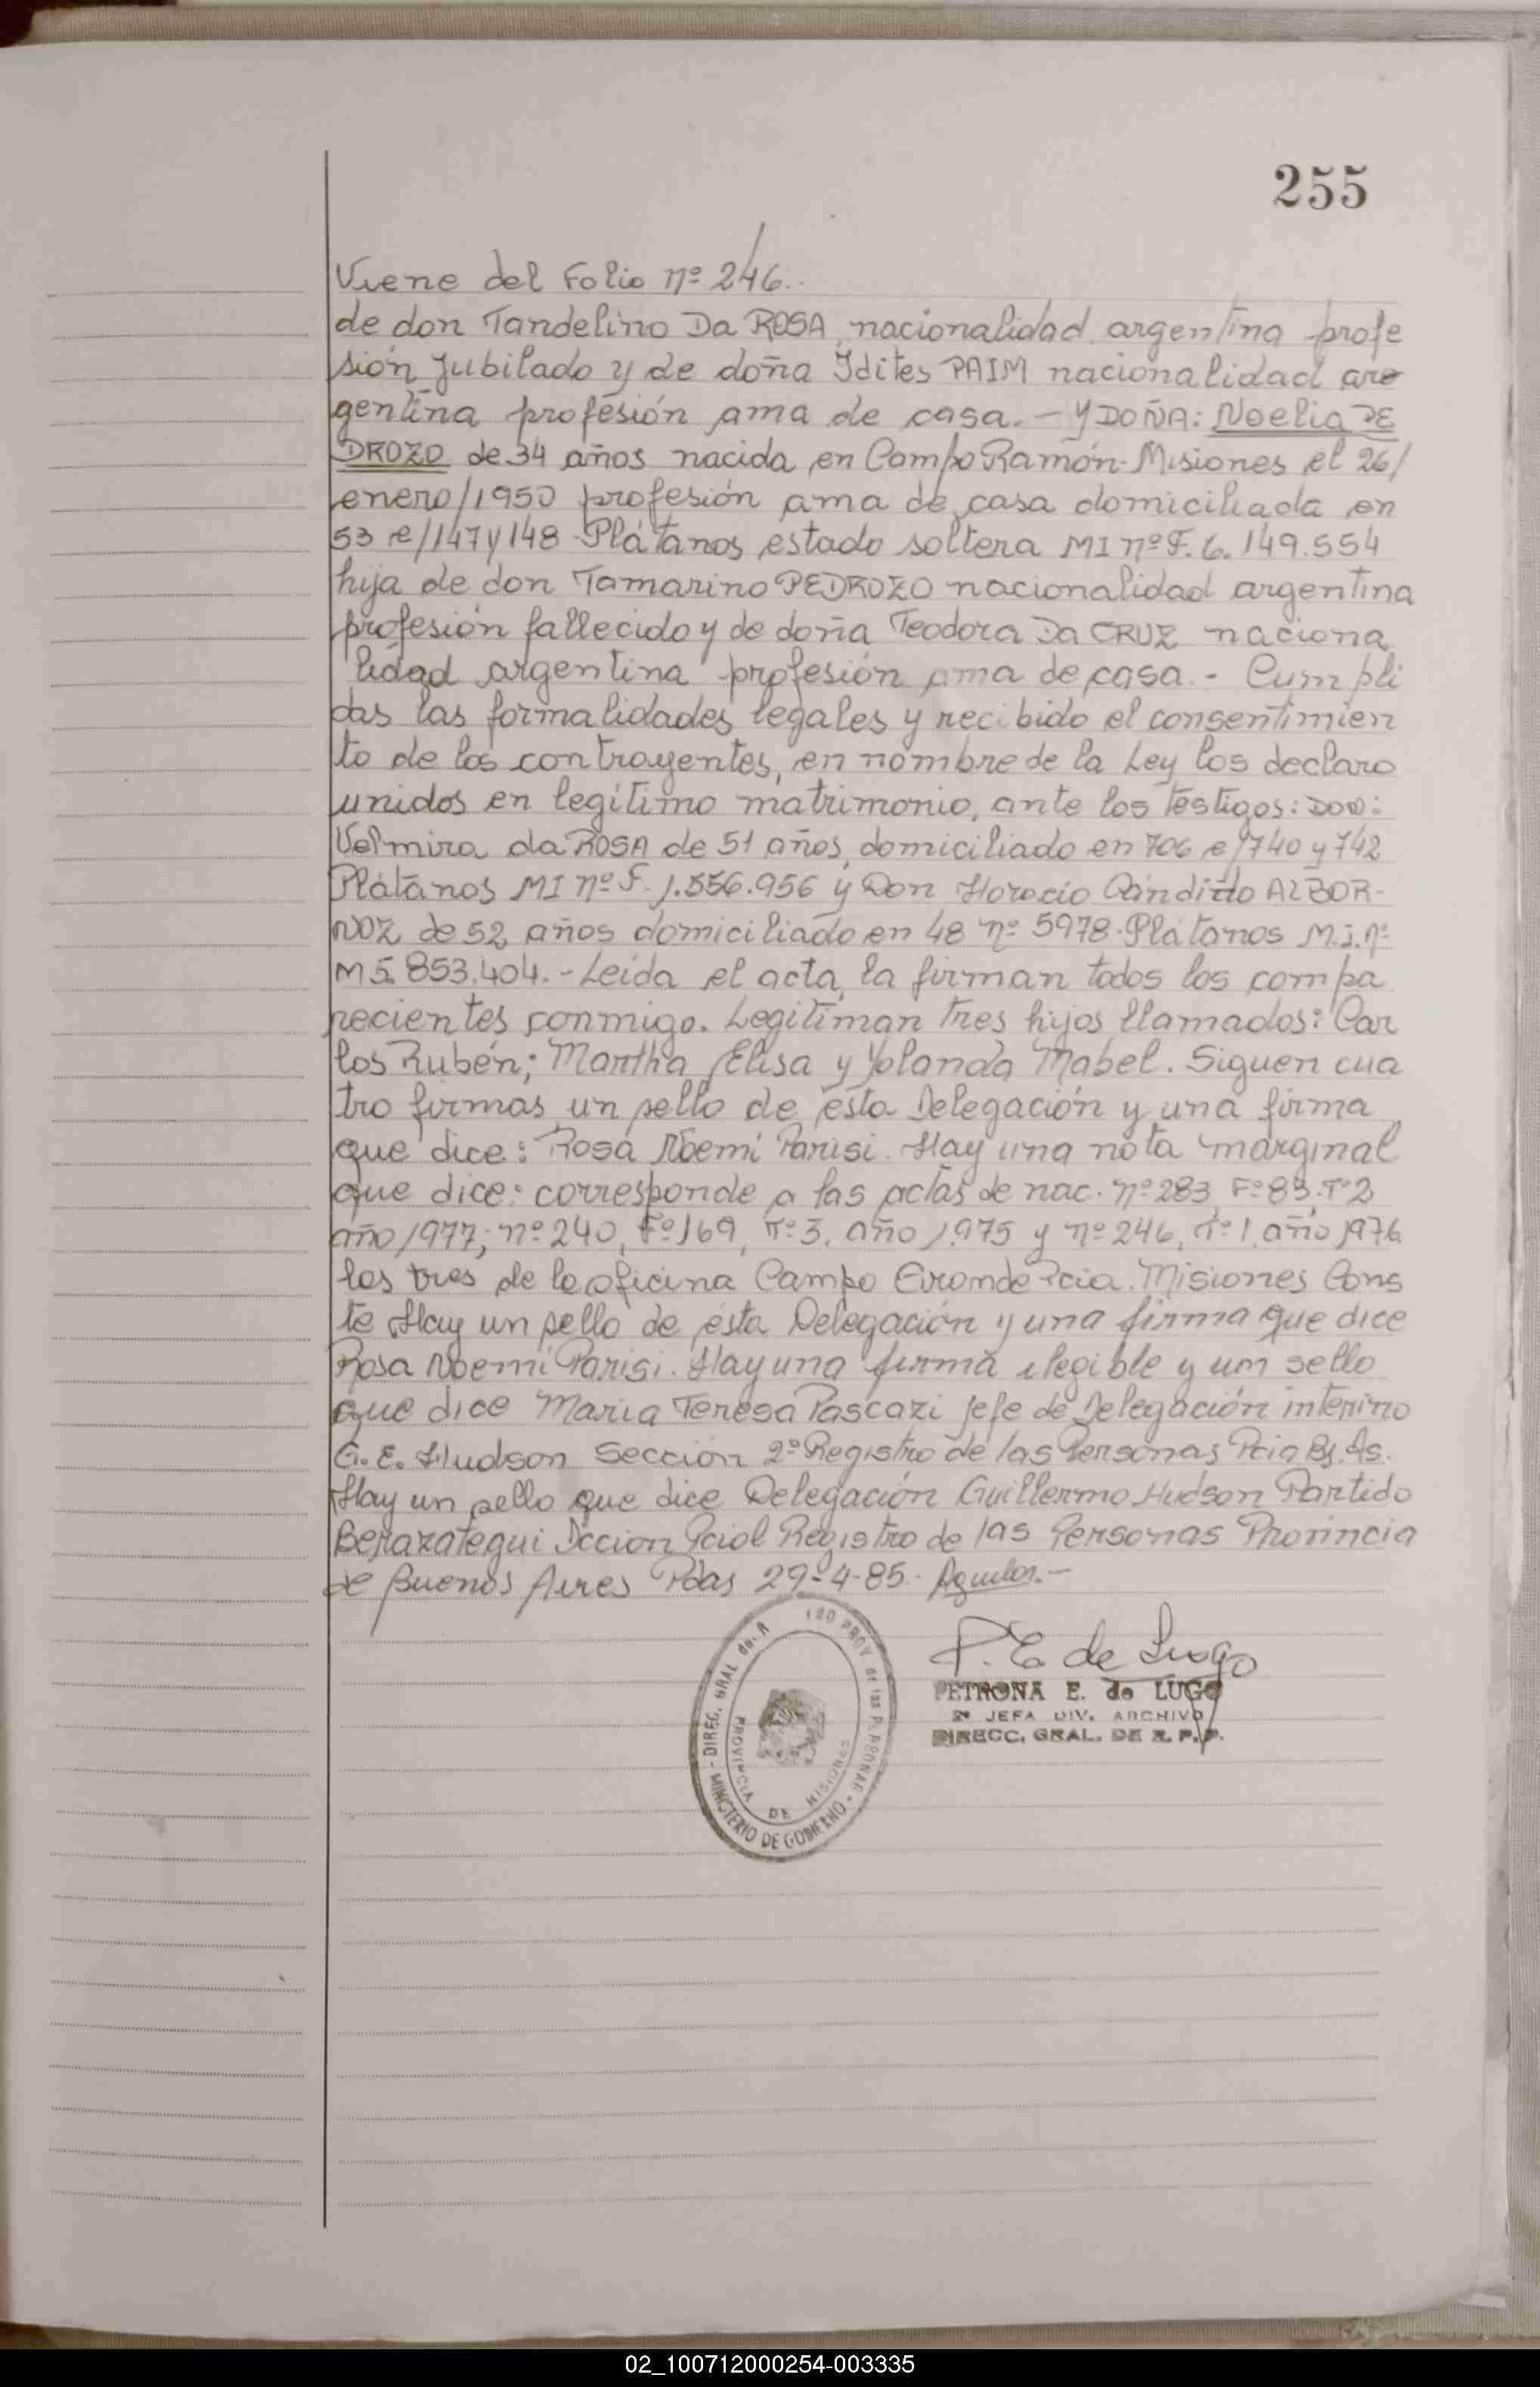 255
Viene del Folio nº 246.-
de don Tandelino Da ROSA, nacionalidad argentina profe
sión Jubilado y de doña Idites PAIM nacionalidad ar
gentina profesión ama de casa. - Y DOÑA: Noelia PE
DROZO de 34 años nacida en Campo Ramón-Misiones el 26/
enero/1950 profesión ama de casa domiciliada en
53 e/147 y 148 - Plátanos estado soltera MI nº F. 6.149.554
hija de don Tamarino PEDROZO nacionalidad argentina
profesión fallecido y de doña Teodora Da CRUZ naciona
lidad argentina profesión ama de casa. - Cumpli
das las formalidades legales y recibido el consentimien
to de los contrayentes, en nombre de la Ley los declaro
unidos en legítimo matrimonio, ante los testigos: DON:
Velmira da ROSA de 51 años, domiciliado en 706 e/740 y 742
Plátanos MI nº F. 1.556.956 y Don Horacio Cándido ALBOR-
NOZ de 52 años domiciliado en 48 nº 5978-Plátanos M.I. nº
M 5.853.404. - Leída el acta, la firman todos los compa
recientes conmigo. Legitiman tres hijos llamados: Car
los Rubén; Martha Elisa y Yolanda Mabel. Siguen cua
tro firmas un sello de ésta Delegación y una firma
que dice: Rosa Noemí Parisi. Hay una nota marginal
que dice: corresponde a las actas de nac. nº 283, Fº 83, Tº 2
año 1977; nº 240, Fº 169, Tº 3, año 1.975 y nº 246, Tº 1, año 1976
los tres de la oficina Campo Grande Pcia. Misiones Cons
te Hay un sello de ésta Delegación y una firma que dice
Rosa Noemí Parisi. Hay una firma ilegible y un sello
que dice Maria Teresa Pascazi Jefe de Delegación interino
G. E. Hudson Sección 2º Registro de las Personas Pcia Bs. As.
Hay un sello que dice Delegación Guillermo Hudson Partido
Berazategui Dccion Pcial Registro de las Personas Provincia
de Buenos Aires Pdas 29-4-85.
P. E. de Lugo
PETRONA E. de LUGO
2º JEFA DIV. ARCHIVO
DIRECC. GRAL. DE R. P. P.
DIREC. GRAL. del R PROV de las PERSONAS
MINISTERIO DE GOBIERNO
PROVINCIA DE MISIONES
02_100712000254-003335